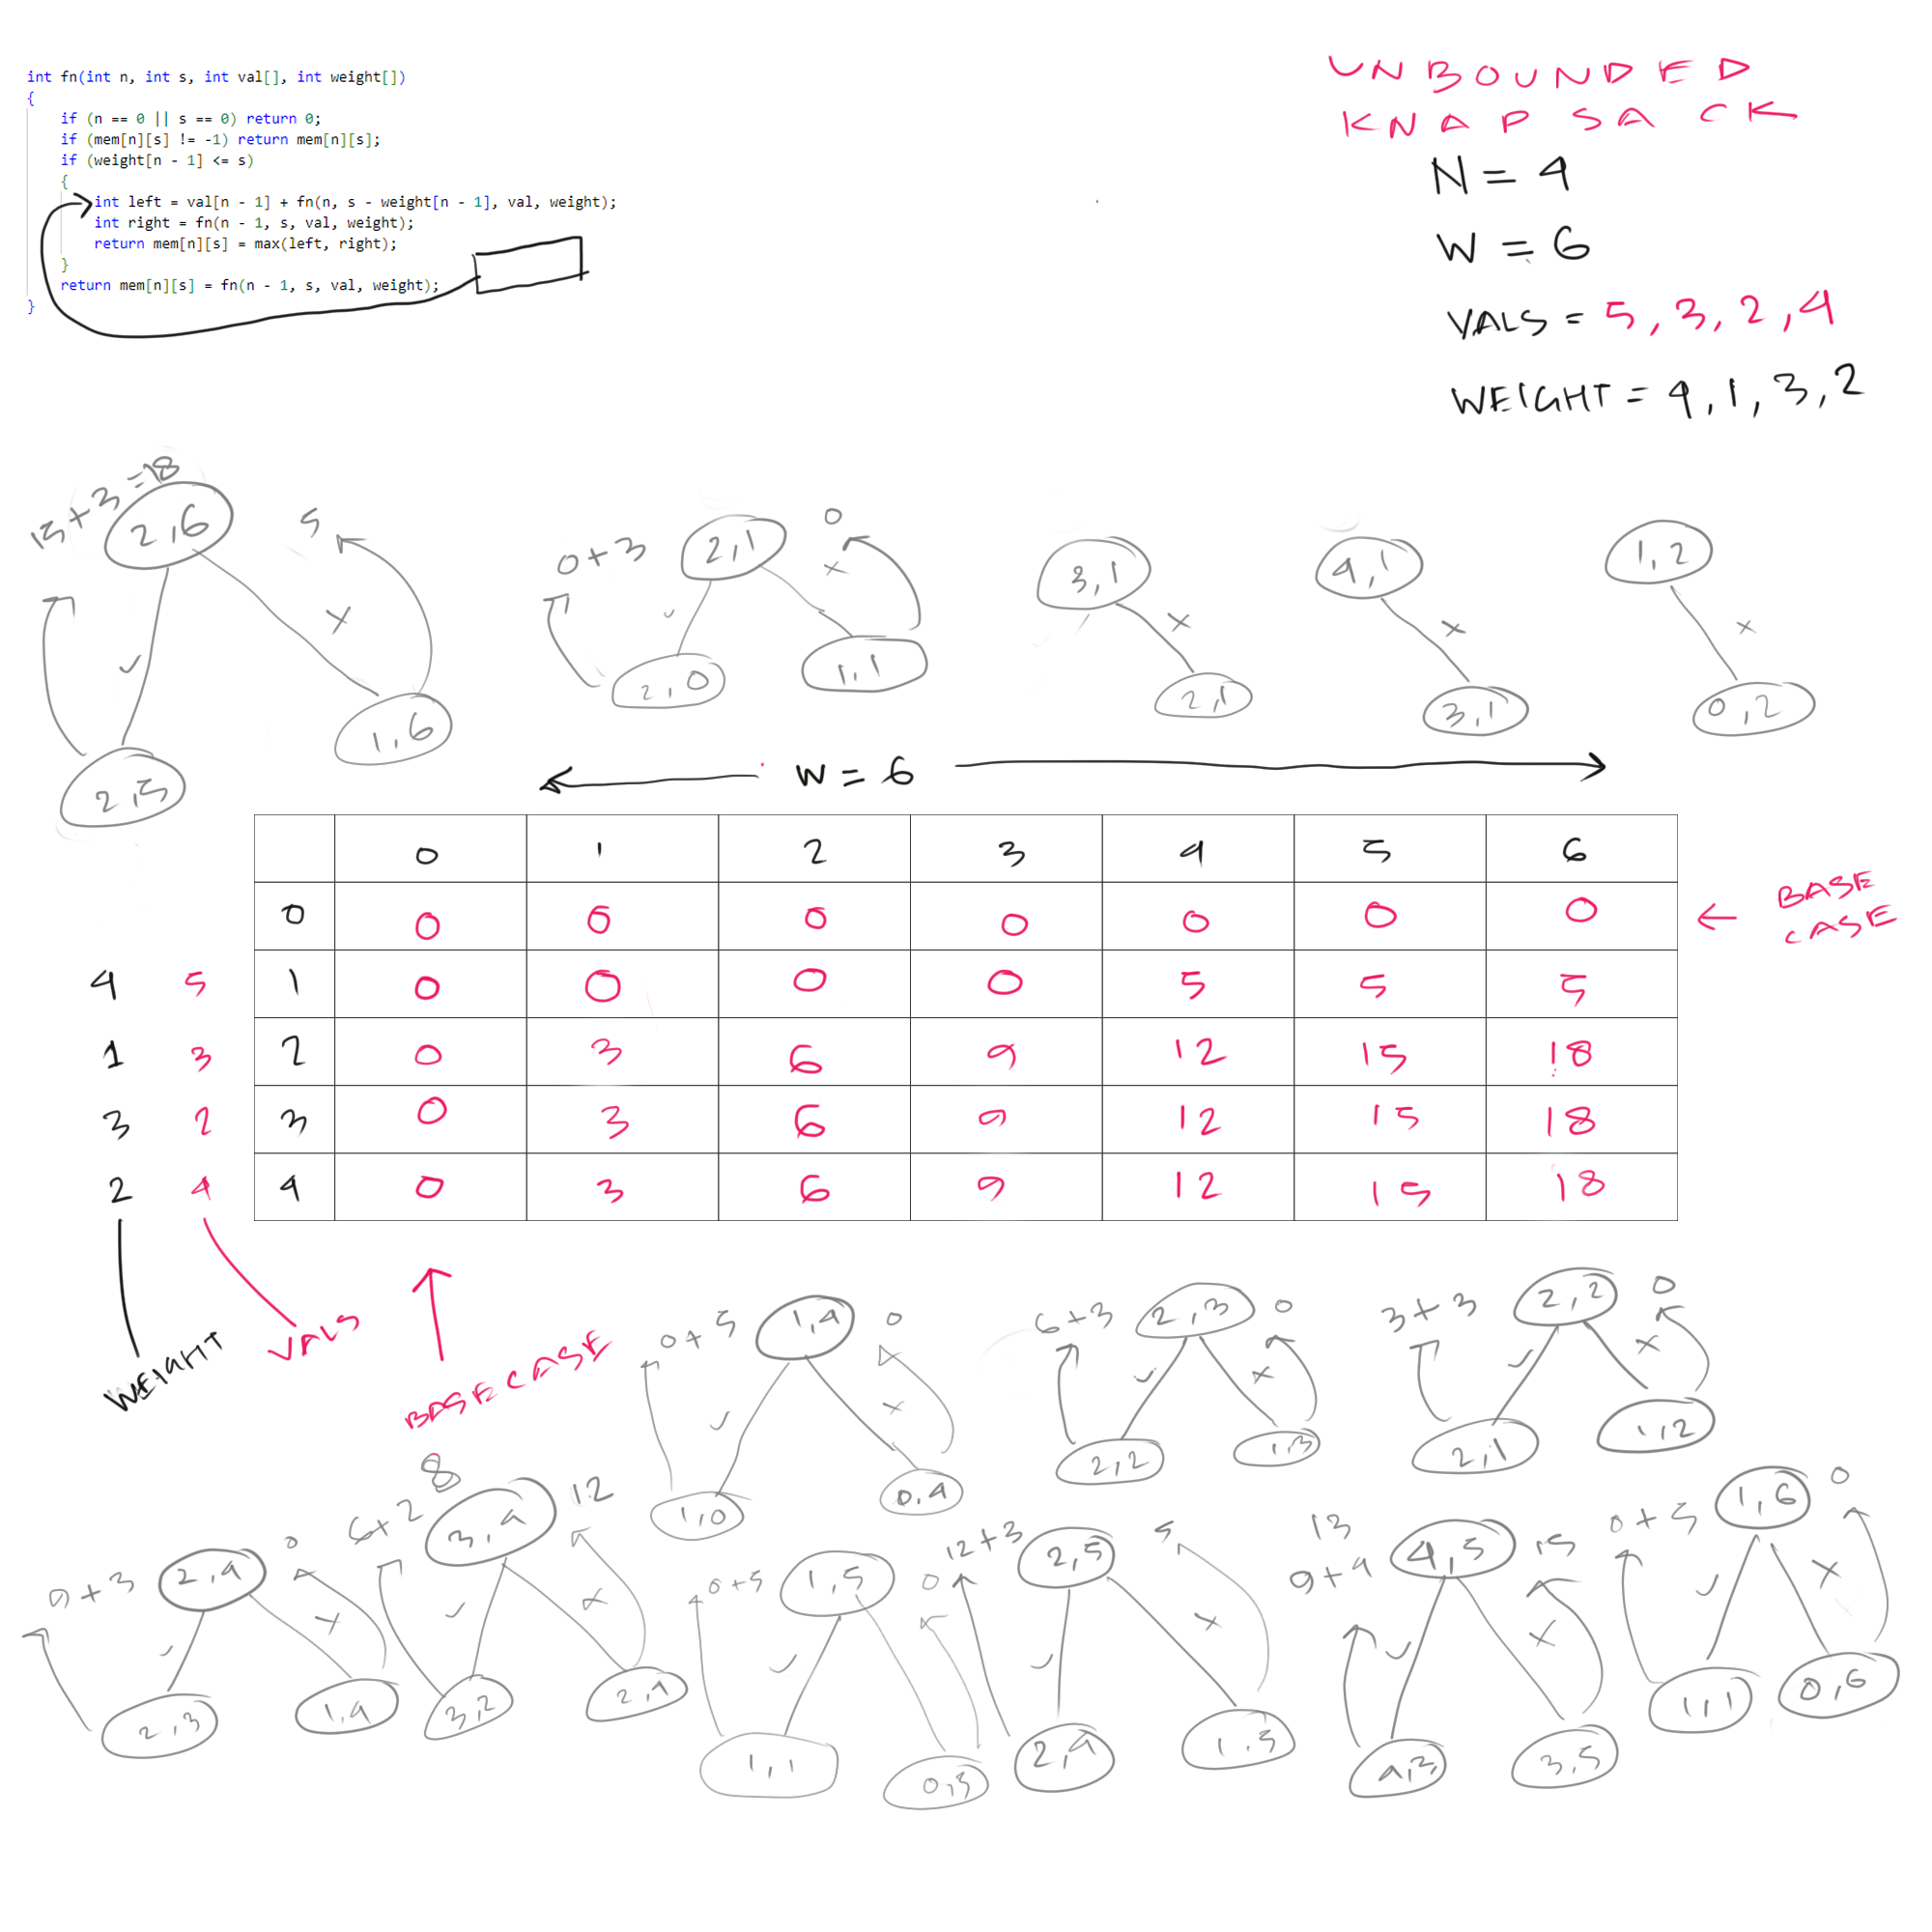 int fn(int n, int s, int val[], int weight[])
{
if (n == 0 || s == 0) return 0;
if (mem[n][s] != -1) return mem[n][s];
if (weight[n - 1] <= s)
{
int left = val[n - 1] + fn(n, s - weight[n - 1], val, weight);
int right = fn(n - 1, s, val, weight);
return mem[n][s] = max(left, right);
}
return mem[n][s] = fn(n - 1, s, val, weight);
}
UNBOUNDED
KNAPSACK
N = 4
W = 6
VALS = 5, 3, 2, 4
WEIGHT = 4, 1, 3, 2
15+3=18
2,6
5
2,5
1,6
0+3
2,1
0
2,0
1,1
3,1
2,1
4,1
3,1
1,2
0,2
W = 6
0 1 2 3 4 5 6
0 0 0 0 0 0 0 0
BASE
CASE
4 5 1 0 0 0 0 5 5 5
1 3 2 0 3 6 9 12 15 18
3 2 3 0 3 6 9 12 15 18
2 4 4 0 3 6 9 12 15 18
WEIGHT
VALS
BASE CASE
0+5
1,4
0
1,0
0,4
6+3
2,3
0
2,2
1,3
3+3
2,2
0
2,1
1,2
9+3
2,4
0
2,3
1,4
8
6+2
3,4
12
3,2
2,4
0+5
1,5
0
1,1
0,5
12+3
2,5
5
2,4
1,5
13
9+4
4,5
15
4,3
3,5
0+5
1,6
0
1,1
0,6